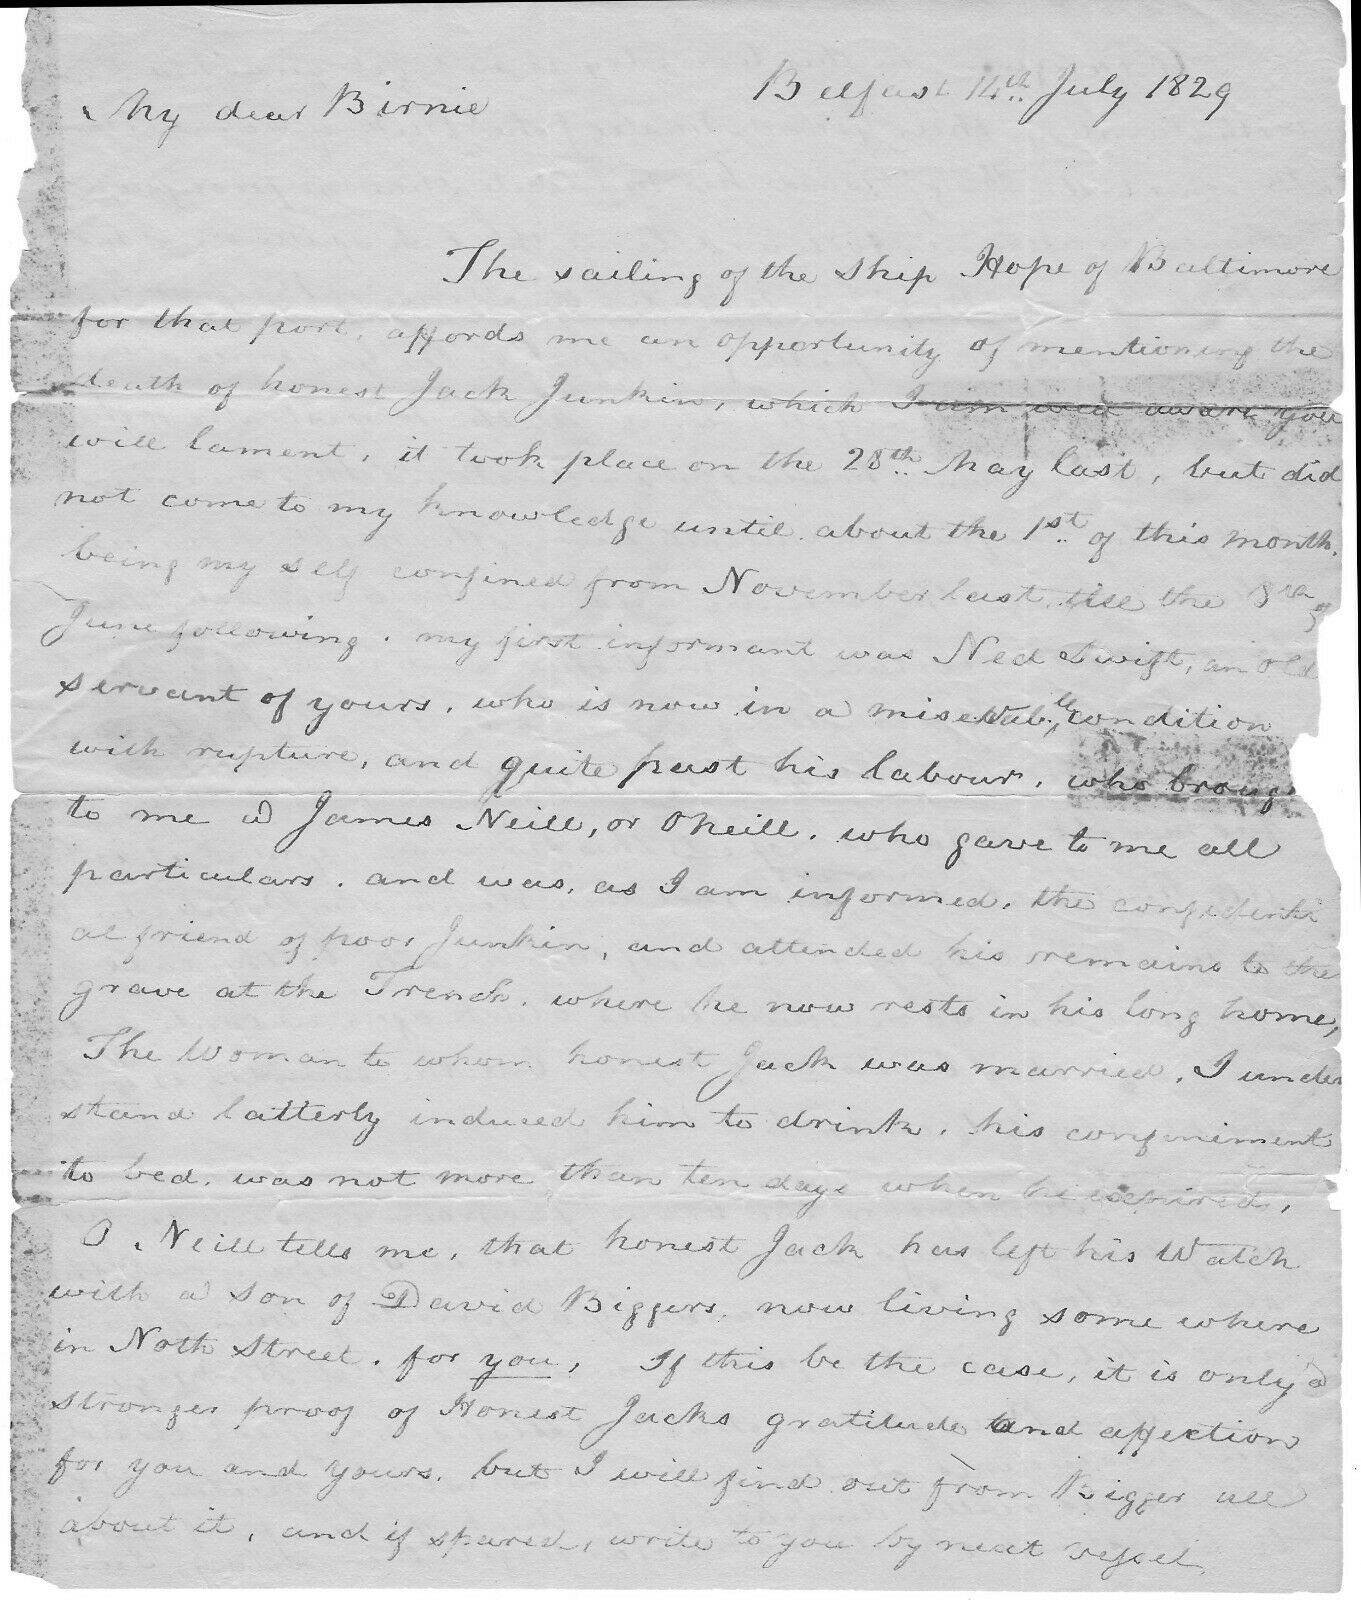 Belfast 14th July 1829
My dear Birnie
The sailing of the ship Hope of Baltimore
for that port, affords me an opportunity of mentioning the
death of honest Jack Junkin, which I am well aware you
will lament, it took place on the 28th May last, but did
not come to my knowledge until about the 1st of this month.
being my self confined from November last, till the 8th of
June following. my first informant was Ned Swift, an old
servant of yours, who is now in a miserable condition
with rupture, and quite past his labour. who broug
to me a James Neill, or ONeill. who gave to me all
particulars. and was, as I am informed, the confidenti
al friend of poor Junkin, and attended his remains to the
grave at the Trench. where he now rests in his long home,
The Woman to whom honest Jack was married, I under
stand latterly induced him to drink. his confiniment
to bed. was not more than ten days when he expired,
O Neill tells me, that honest Jack has left his Watch
with a son of David Biggers, now living some where
in Noth Street. for you, If this be the case, it is only a
stronger proof of Honest Jacks gratitude and affection
for you and yours. but I will find out from Bigger all
about it, and if spared, write to you by next vessel